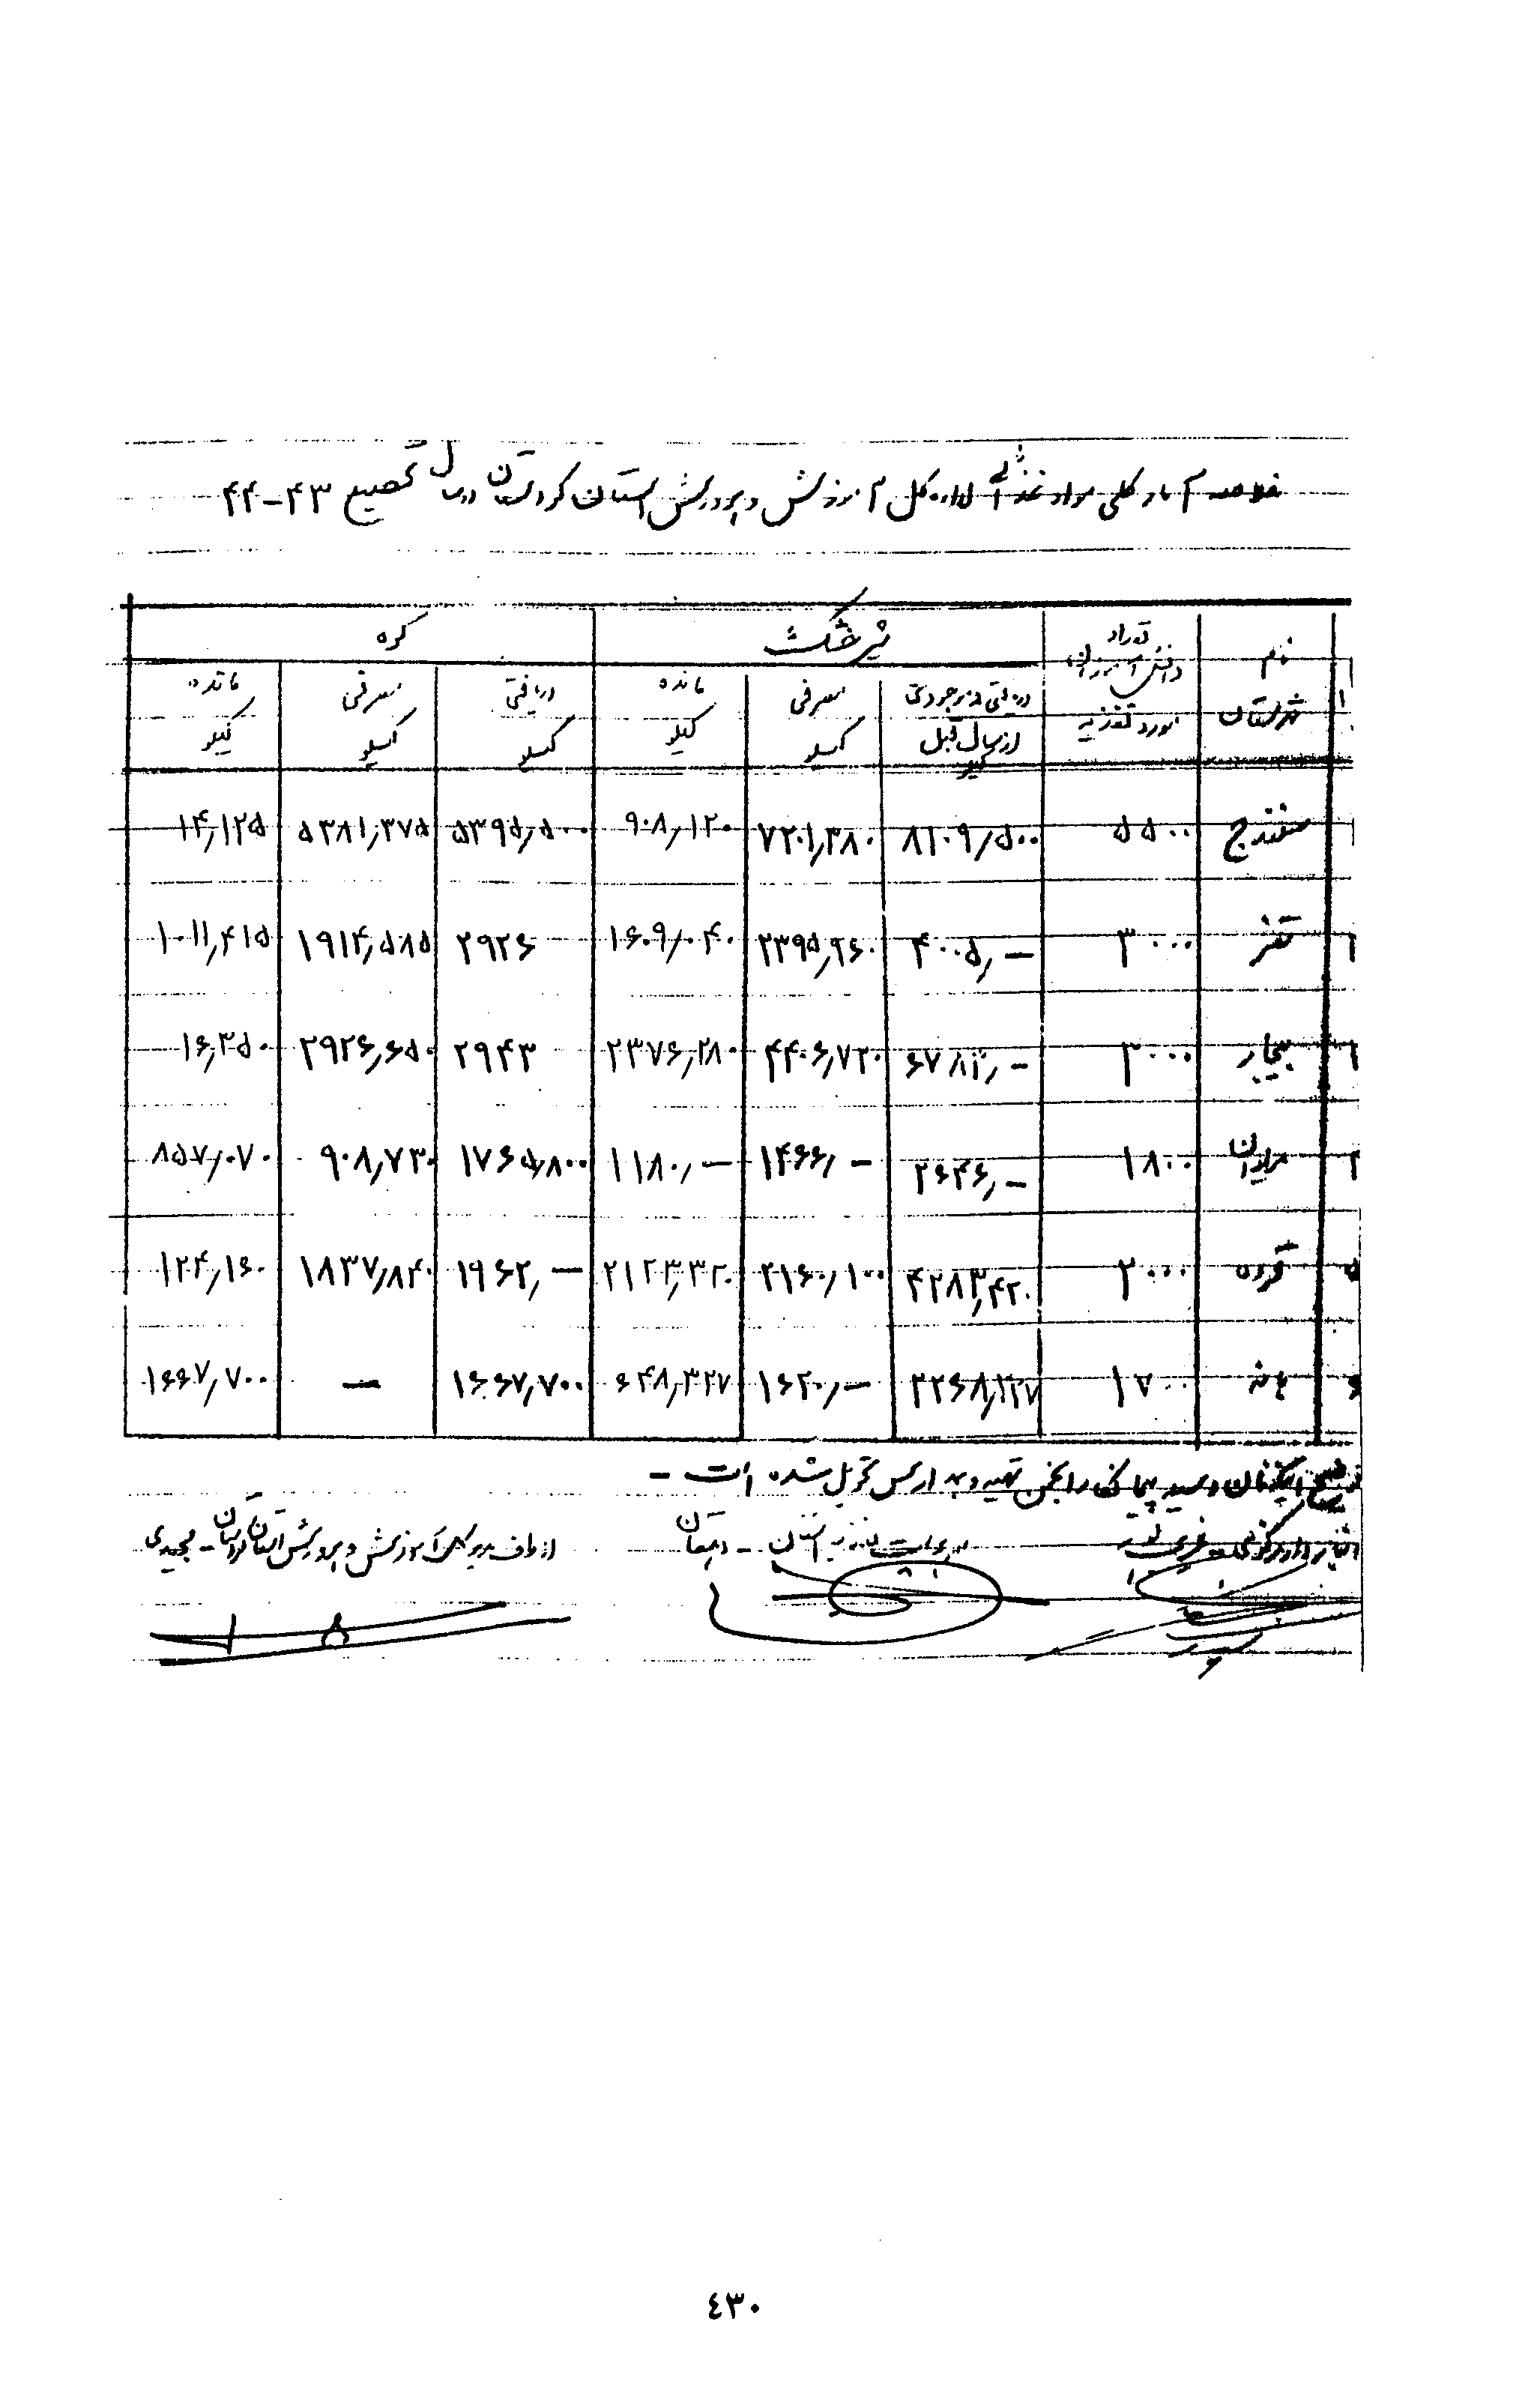 خلاصه آمار کلی مواد غذائی اداره کل آموزش و پرورش استان کردستان در سال تحصیلی ۴۳-۴۴
نام شهرستان | تعداد دانش آموزان مورد تغذیه | شیر خشک | کره
دریافتی و موجودی از سال قبل کیلو | مصرفی کیلو | مانده کیلو | دریافتی کیلو | مصرفی کیلو | مانده کیلو
۱ سنندج ۵۵۰۰ ۸۱۰۹/۵۰۰ ۷۲۰۱/۳۸۰ ۹۰۸/۱۲۰ ۵۳۹۵/۵۰۰ ۵۳۸۱/۳۷۵ ۱۴/۱۲۵
سقز ۳۰۰۰ ۴۰۰۵/- ۲۳۹۵/۹۶۰ ۱۶۰۹/۰۴۰ ۲۹۲۶ ۱۹۱۴/۵۸۵ ۱۰۱۱/۴۱۵
بیجار ۳۰۰۰ ۶۷۸۳/- ۴۴۰۶/۷۲۰ ۲۳۷۶/۲۸۰ ۲۹۴۳ ۲۹۲۶/۶۵۰ ۱۶/۳۵۰
مریوان ۱۸۰۰ ۲۶۴۶/- ۱۴۶۶/- ۱۱۸۰/- ۱۷۶۵/۸۰۰ ۹۰۸/۷۳۰ ۸۵۷/۰۷۰
۵ قروه ۲۰۰۰ ۴۲۸۳/۴۲۰ ۲۱۶۰/۱۰۰ ۲۱۲۳/۳۲۰ ۱۹۶۲/- ۱۸۳۷/۸۴۰ ۱۲۴/۱۶۰
۶ بانه ۱۷۰۰ ۲۲۶۸/۳۲۷ ۱۶۲۰/- ۶۴۸/۳۲۷ ۱۶۶۷/۷۰۰ - ۱۶۶۷/۷۰۰
را انجمن تهیه و به تحویل شده است -
سرپرست تغذیه استان - دهقان
از طرف مدیر کل آموزش و پرورش استان کردستان - مجیدی
٤٣٠